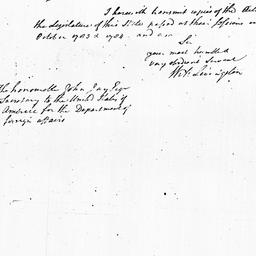 I herewith transmit copies of the Acts
the Legislature of this State passed at their sessions in
October 1783 & 1784. and am
Sir
your most humble &
very obedient Servant
Wil. Livingston
The honourable John Jay Esqr
Secretary to the United States of
America for the Department of
foreign affairs